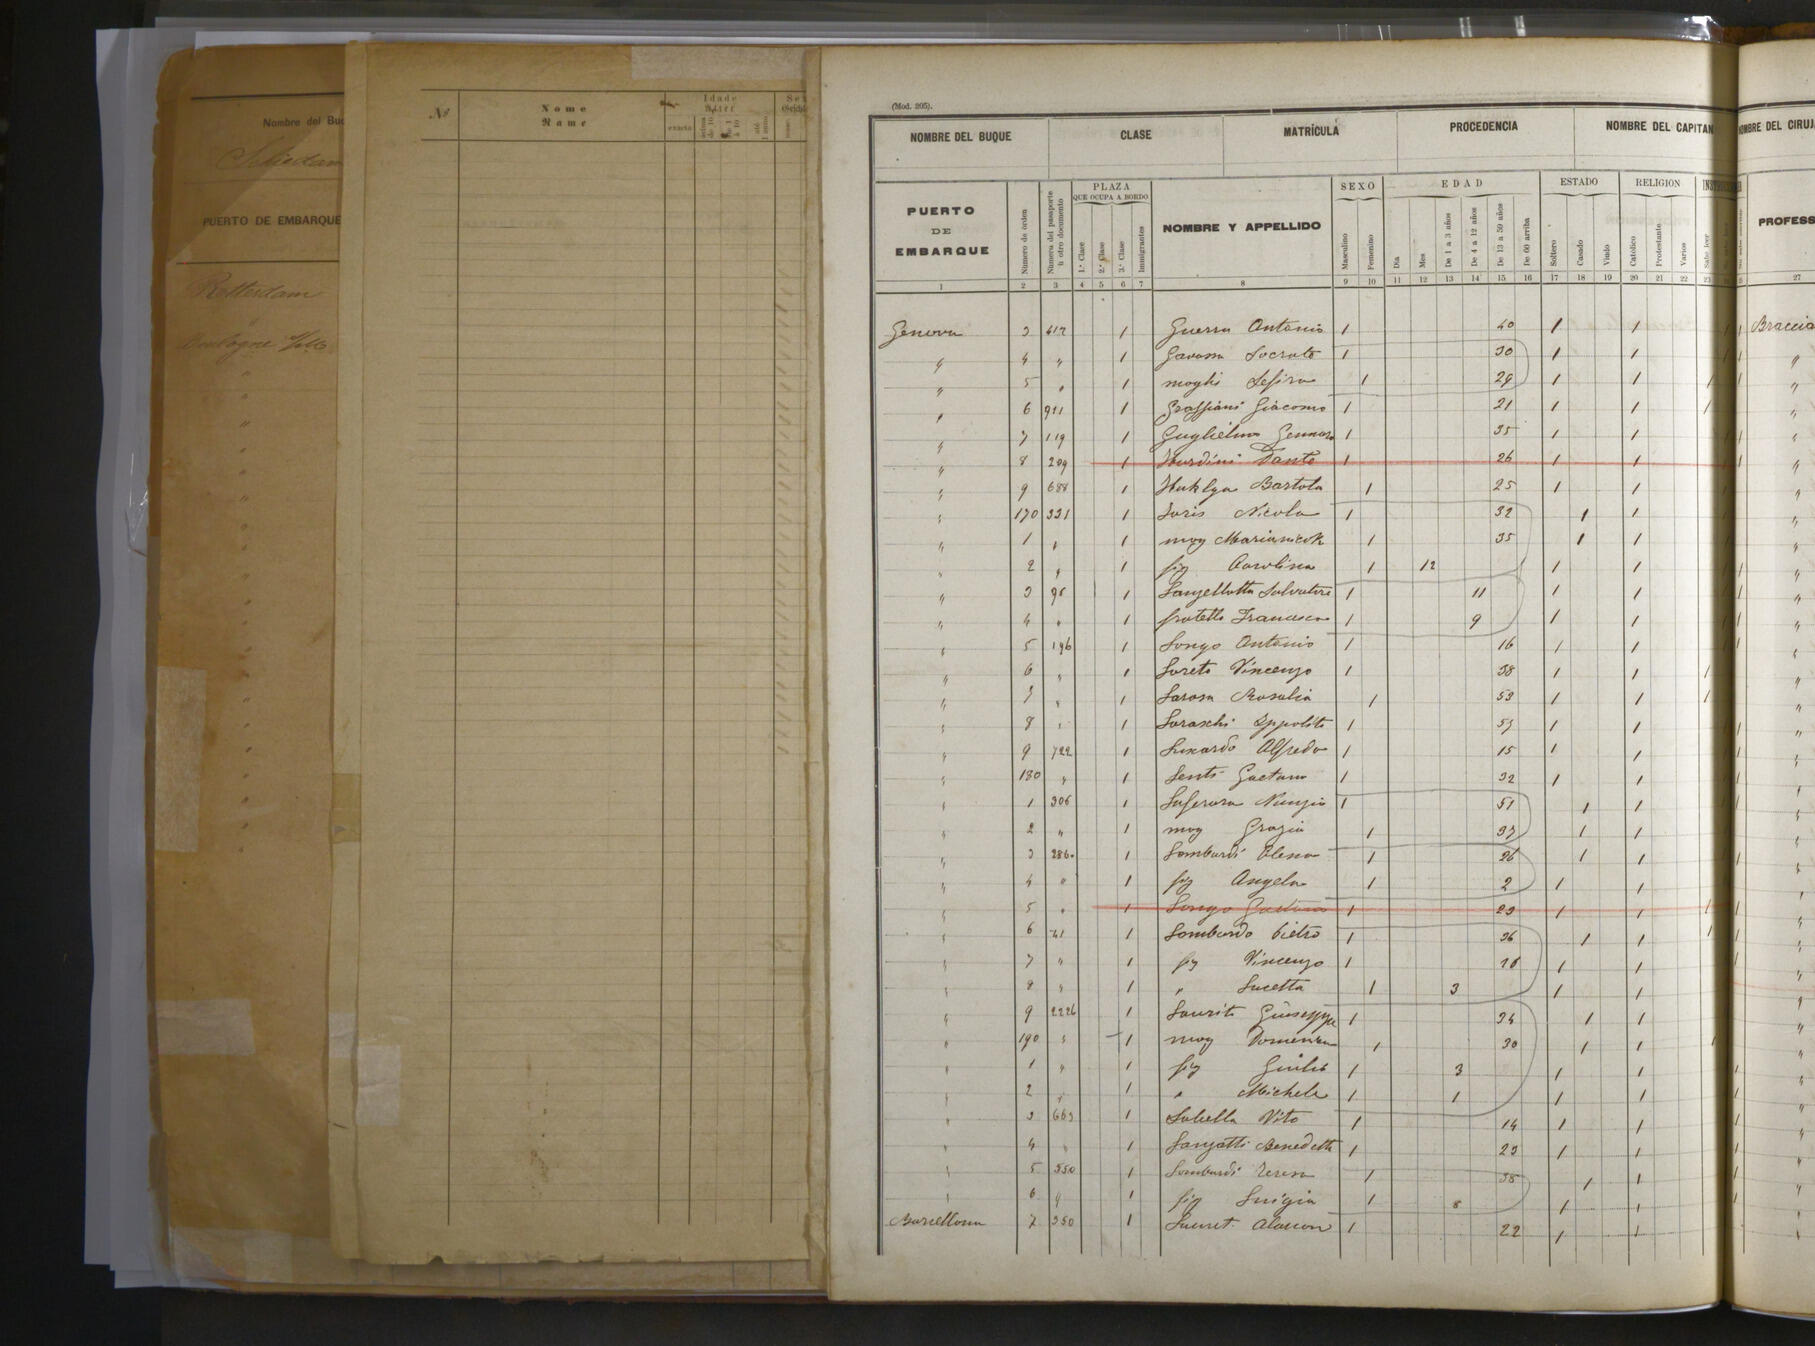 Nombre del Buq
Schiedam
PUERTO DE EMBARQUE
Rotterdam
Boulogne
Nº Nome Name Idade Alter
exacta
(Mod. 205).
NOMBRE DEL BUQUE CLASE MATRÍCULA PROCEDENCIA NOMBRE DEL CAPITAN NOMBRE DEL CIRUJ
PUERTO DE EMBARQUE Número de orden Número del pasaporte ú otro documento PLAZA QUE OCUPA A BORDO 1.ª Clase 2.ª Clase 3.ª Clase Inmigrantes NOMBRE Y APPELLIDO SEXO Masculino Femenino EDAD Dia Mes De 1 a 3 años De 4 a 12 años De 13 a 59 años De 60 arriba ESTADO Soltero Casado Viudo RELIGION Catolico Protestante Varios Sabe leer PROFESS
1 2 3 4 5 6 7 8 9 10 11 12 13 14 15 16 17 18 19 20 21 22 23 27
Genova 3 412 1 Guerra Antonio 1 40 1 1 1 Braccia
" 4 " 1 Gavassa Socrate 1 30 1 1 1 "
" 5 " 1 mogli Sefira 1 29 1 1 1 "
" 6 911 1 Graffiani Giacomo 1 21 1 1 1 "
" 7 119 1 Guglielmo Gennaro 1 35 1 1 1 "
" 8 209 1 Hurdini Dante 1 26 1 1 1 "
" 9 688 1 Huklya Bartola 1 25 1 1 "
" 170 331 1 Joris Nicola 1 32 1 1 "
" 1 " 1 mog 1 35 1 1 "
" 2 " 1 fig Carolina 1 12 1 1 1 "
" 3 95 1 Lanzellotta Salvatore 1 11 1 1 1 "
" 4 " 1 fratello Francesco 1 9 1 1 1 "
" 5 196 1 Longo Antonio 1 16 1 1 1 "
" 6 " 1 Loreto Vincenzo 1 38 1 1 1 "
" 7 " 1 Larosa Rosalia 1 53 1 1 1 "
" 8 " 1 Loraschi Ippolito 1 57 1 1 1 "
" 9 722 1 Lunardo Alfredo 1 15 1 1 1 "
" 180 " 1 Lenti Gaetano 1 32 1 1 1 "
" 1 306 1 Laferara Nunzio 1 51 1 1 1 "
" 2 " 1 mog Grazia 1 37 1 1 "
" 3 286 1 Lombardi Elena 1 26 1 1 1 "
" 4 " 1 fig Angela 1 2 1 1 1 "
" 5 " 1 Longo Gaetano 1 23 1 1 1 1 "
" 6 41 1 Lombardo Pietro 1 36 1 1 1 1 "
" 7 " 1 fig Vincenzo 1 16 1 1 1 "
" 8 " 1 " Lucetta 1 3 1 1 "
" 9 2226 1 Laurito Giuseppe 1 34 1 1 "
" 190 " 1 mog Domenica 1 30 1 1 1 "
" 1 " 1 fig Giulio 1 3 1 1 1 "
" 2 " 1 " Michele 1 1 1 1 1 "
" 3 663 1 Labella Vito 1 14 1 1 1 "
" 4 " 1 Lanzatti Benedetto 1 23 1 1 1 "
" 5 550 1 Lombardi Teresa 1 38 1 1 1 "
" 6 " 1 fig Luigia 1 8 1 1 1 "
Barcellona 7 350 1 Lauret Alarcon 1 22 1 1 "